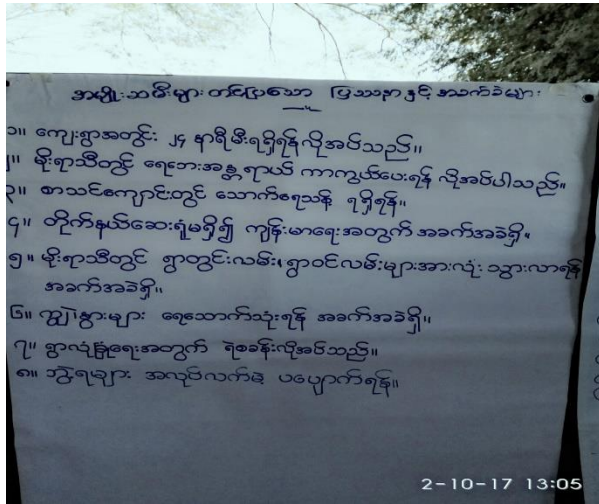 အမျိုးသမီးများ တင်ပြသော ပြဿနာနှင့် အခက်ခဲများ
၁။ ကျေးရွာအတွင်း ၂၄ နာရီမီးရရှိရန်လိုအပ်သည်။
၂။ မိုးရာသီတွင် ရေဘေးအန္တရာယ် ကာကွယ်ပေးရန် လိုအပ်ပါသည်။
၃။ စာသင်ကျောင်းတွင် သောက်ရေသန့် ရရှိရန်။
၄။ တိုက်နယ်ဆေးရုံမရှိ၍ ကျန်းမာရေးအတွက် အခက်အခဲရှိ။
၅။ မိုးရာသီတွင် ရွာတွင်းလမ်း၊ ရွာဝင်လမ်းများအားလုံး သွားလာရန်
အခက်အခဲရှိ။
၆။ ကျွဲ၊ နွားများ ရေသောက်သုံးရန် အခက်အခဲရှိ။
၇။ ရွာလုံခြုံရေးအတွက် ရဲစခန်းလိုအပ်သည်။
၈။ ဘွဲ့ရများ အလုပ်လက်မဲ့ ပပျောက်ရန်။
2-10-17 13:05